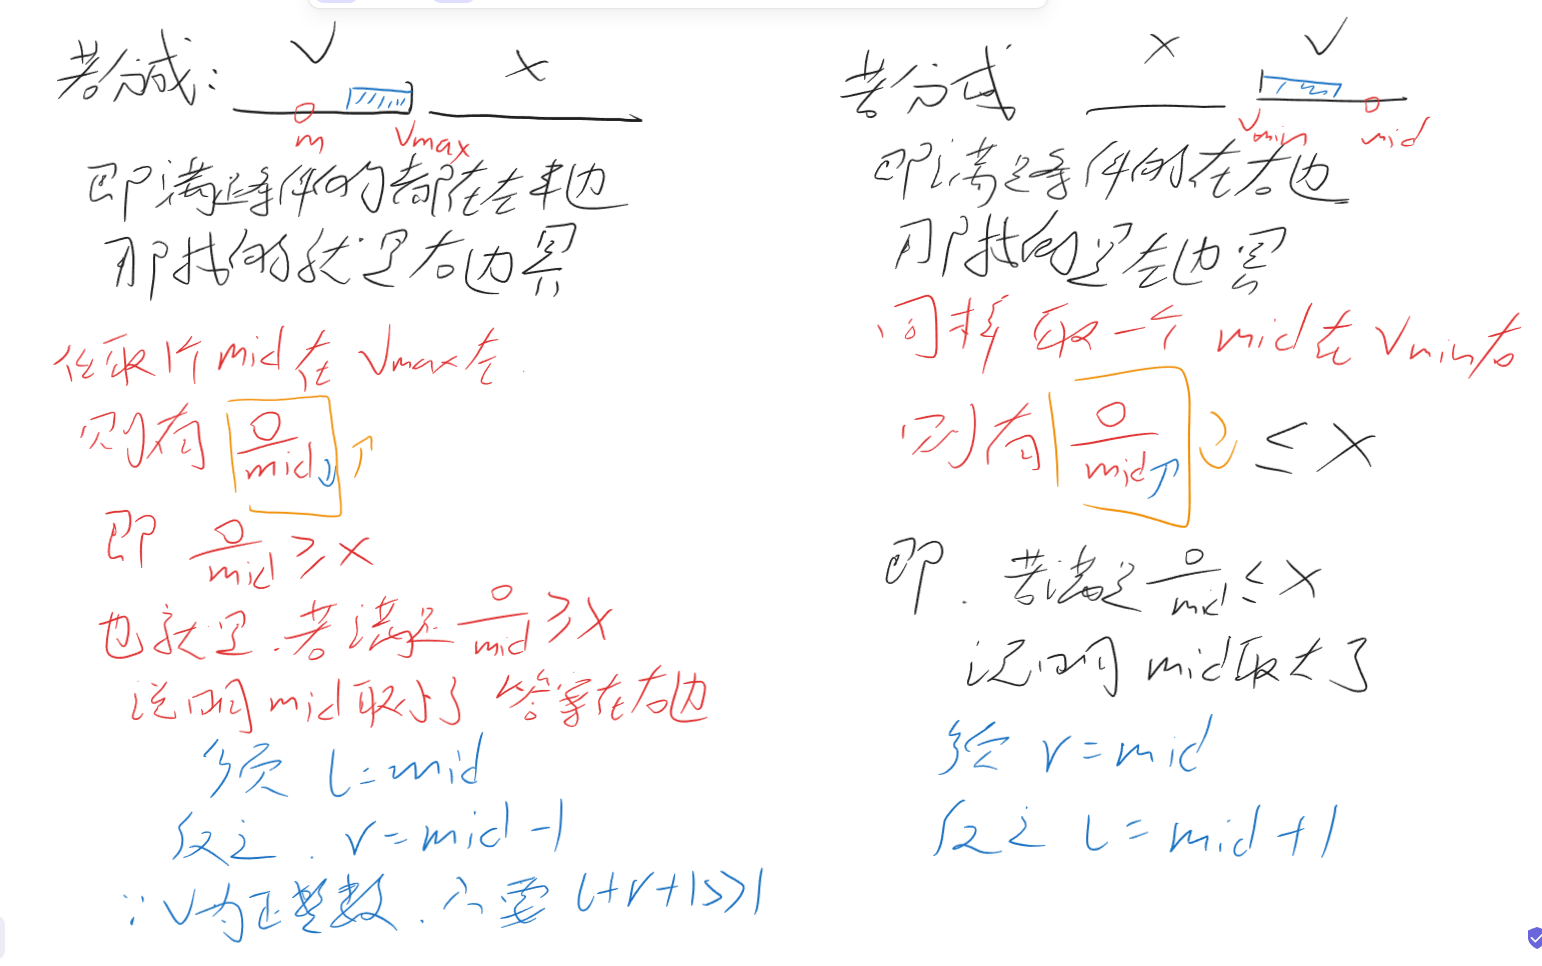 若分成: √ ×
m Vmax
即满足条件的都在左半边
那找的就是右边界
任取1个mid在Vmax左
则有 0/mid↓ ↑
即 0/mid ≥ x
也就是.若满足 0/mid ≥ x
说明mid取小了 答案在右边
l=mid
反之. r=mid-1
∵V为正整数. 需 l+r+1>>1
若分成 × √
Vmin mid
即满足条件的在右边
那找的是左边界
同样取一个mid在Vmin右
则有 0/mid↑ ↓ ≤ x
即.若满足 0/mid ≤ x
说明mid取大了
r=mid
反之 l=mid+1